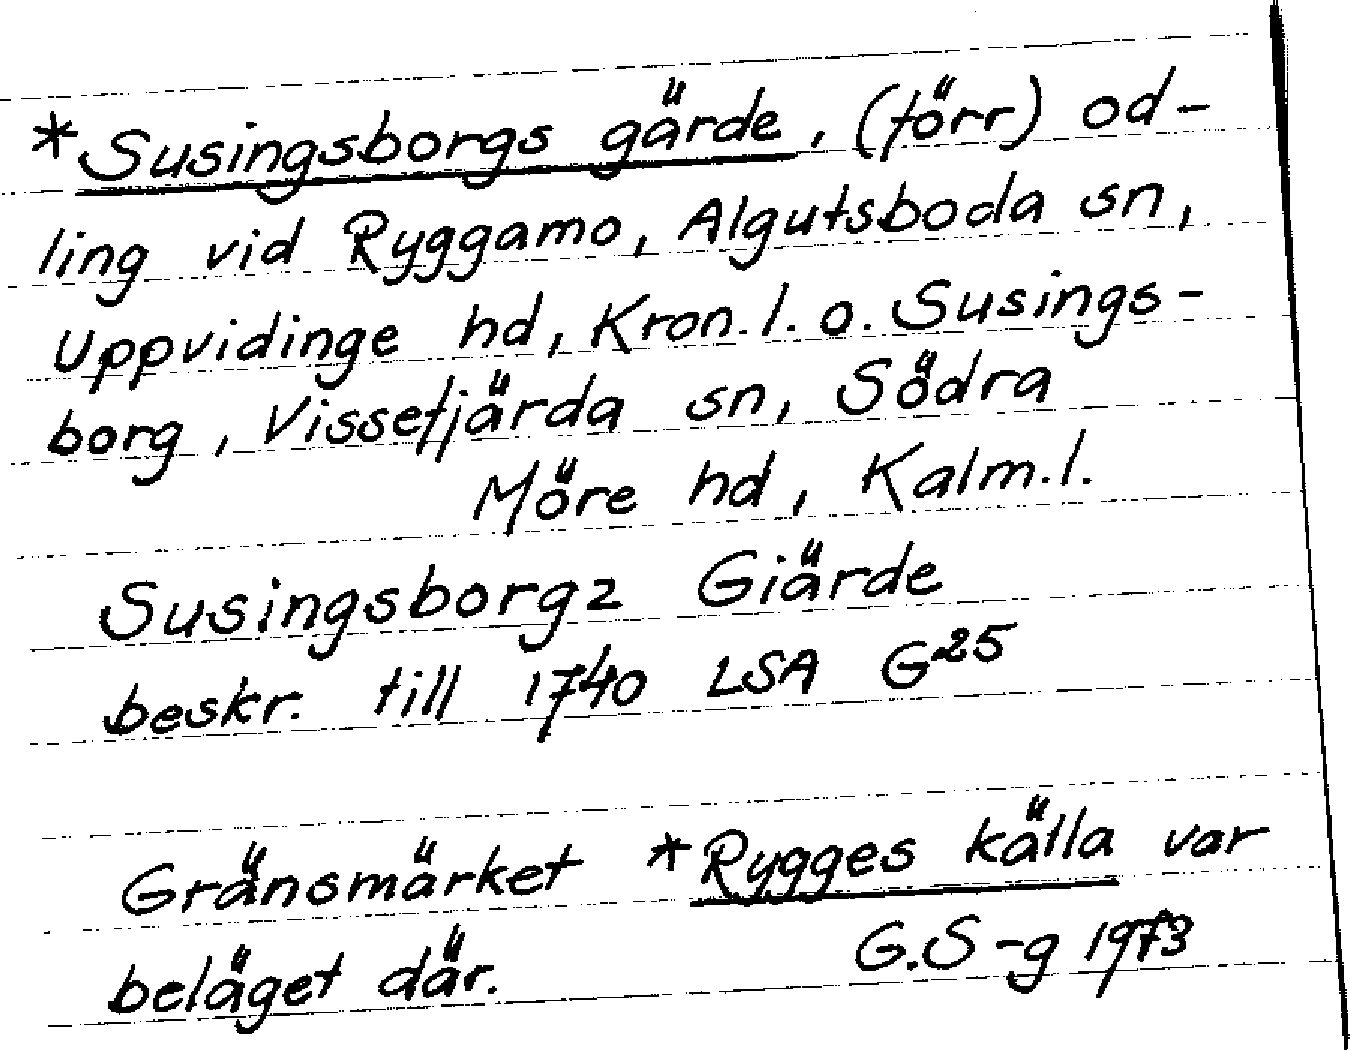 *Susingsborgs gärde, (förr) od-
ling vid Ryggamo, Algutsboda sn,
Uppvidinge hd, Kron.l. o. Susings-
borg, Vissefjärda sn, Södra
Möre hd, Kalm.l.
Susingsborgz Giärde
beskr. till 1740 LSA G25
Gränsmärket *Rygges källa var
beläget där. G.S-g 1973